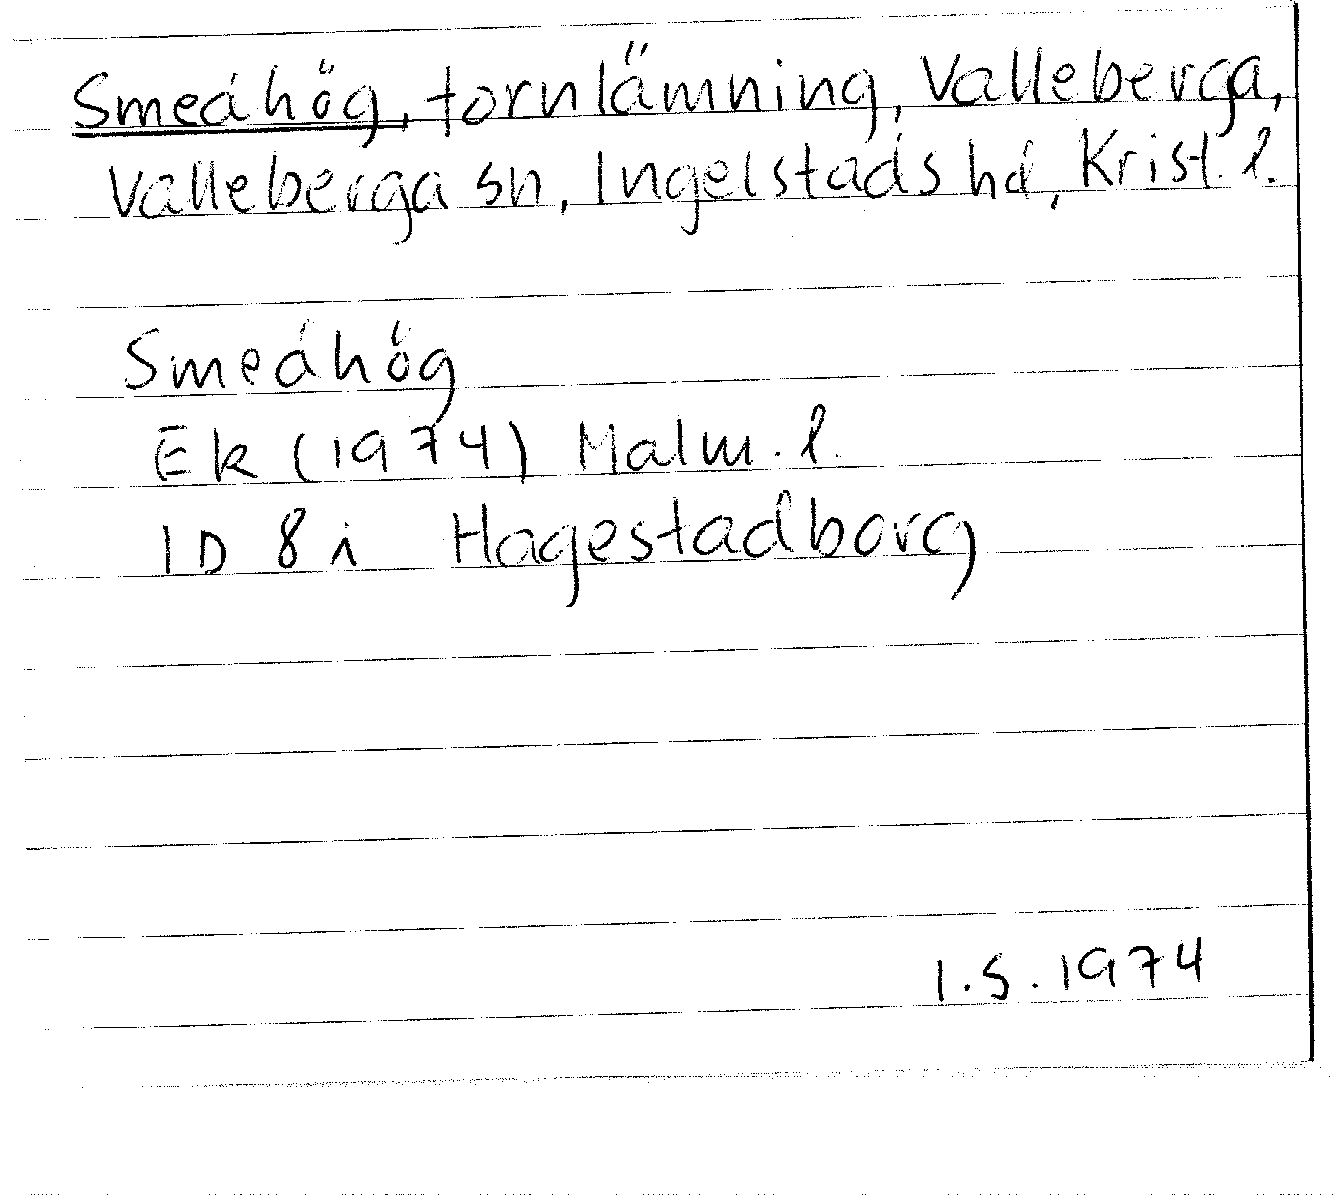 Smeáhög, tornlämning, Valleberga,
Valleberga sn, Ingelstads hd, Krist. l.
Smeáhög
Ek (1974) Malm. l.
1D 8i Hagestadborg
I.S. 1974